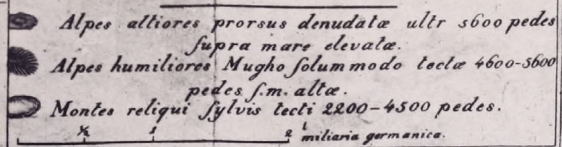 Alpes altiores prorsus denudatæ ultr 5600 pedes
supra mare elevatæ.
Alpes humiliores Mugho solummodo tectæ 4600-5600
pedes s.m. altæ.
Montes reliqui sylvis tecti 2200-4500 pedes.
½ 1 2 miliaria germanica.